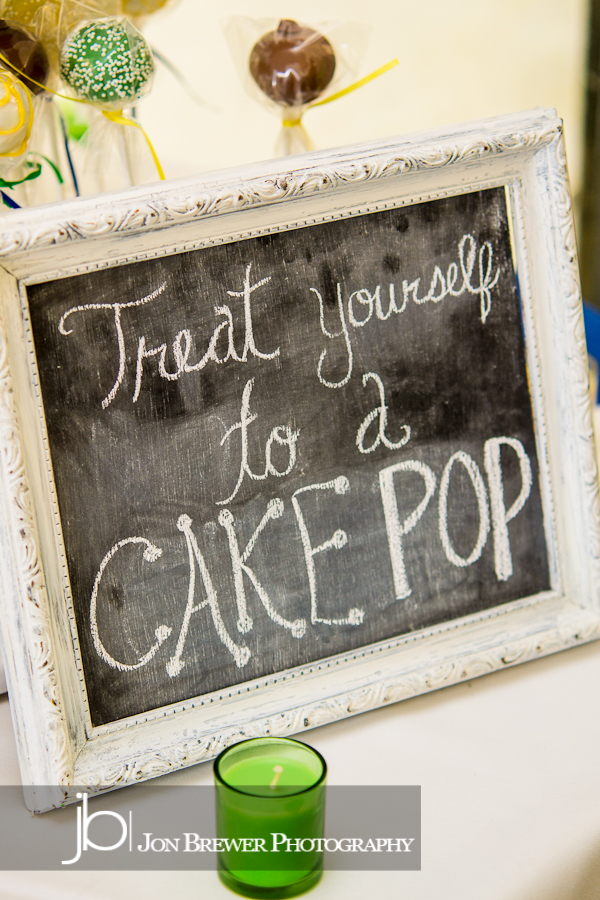 Treat Yourself
to a
CAKE POP
jb | JON BREWER PHOTOGRAPHY